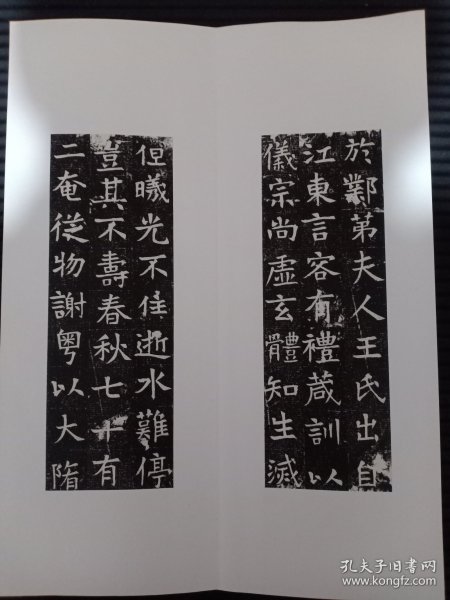 於鄴第夫人王氏出自
江東言容有禮葴訓以
儀宗尚虛玄體知生滅
但曦光不住逝水難停
豈其不壽春秋七十有
二奄從物謝粵以大隋
孔夫子旧书网
www.kongfz.com